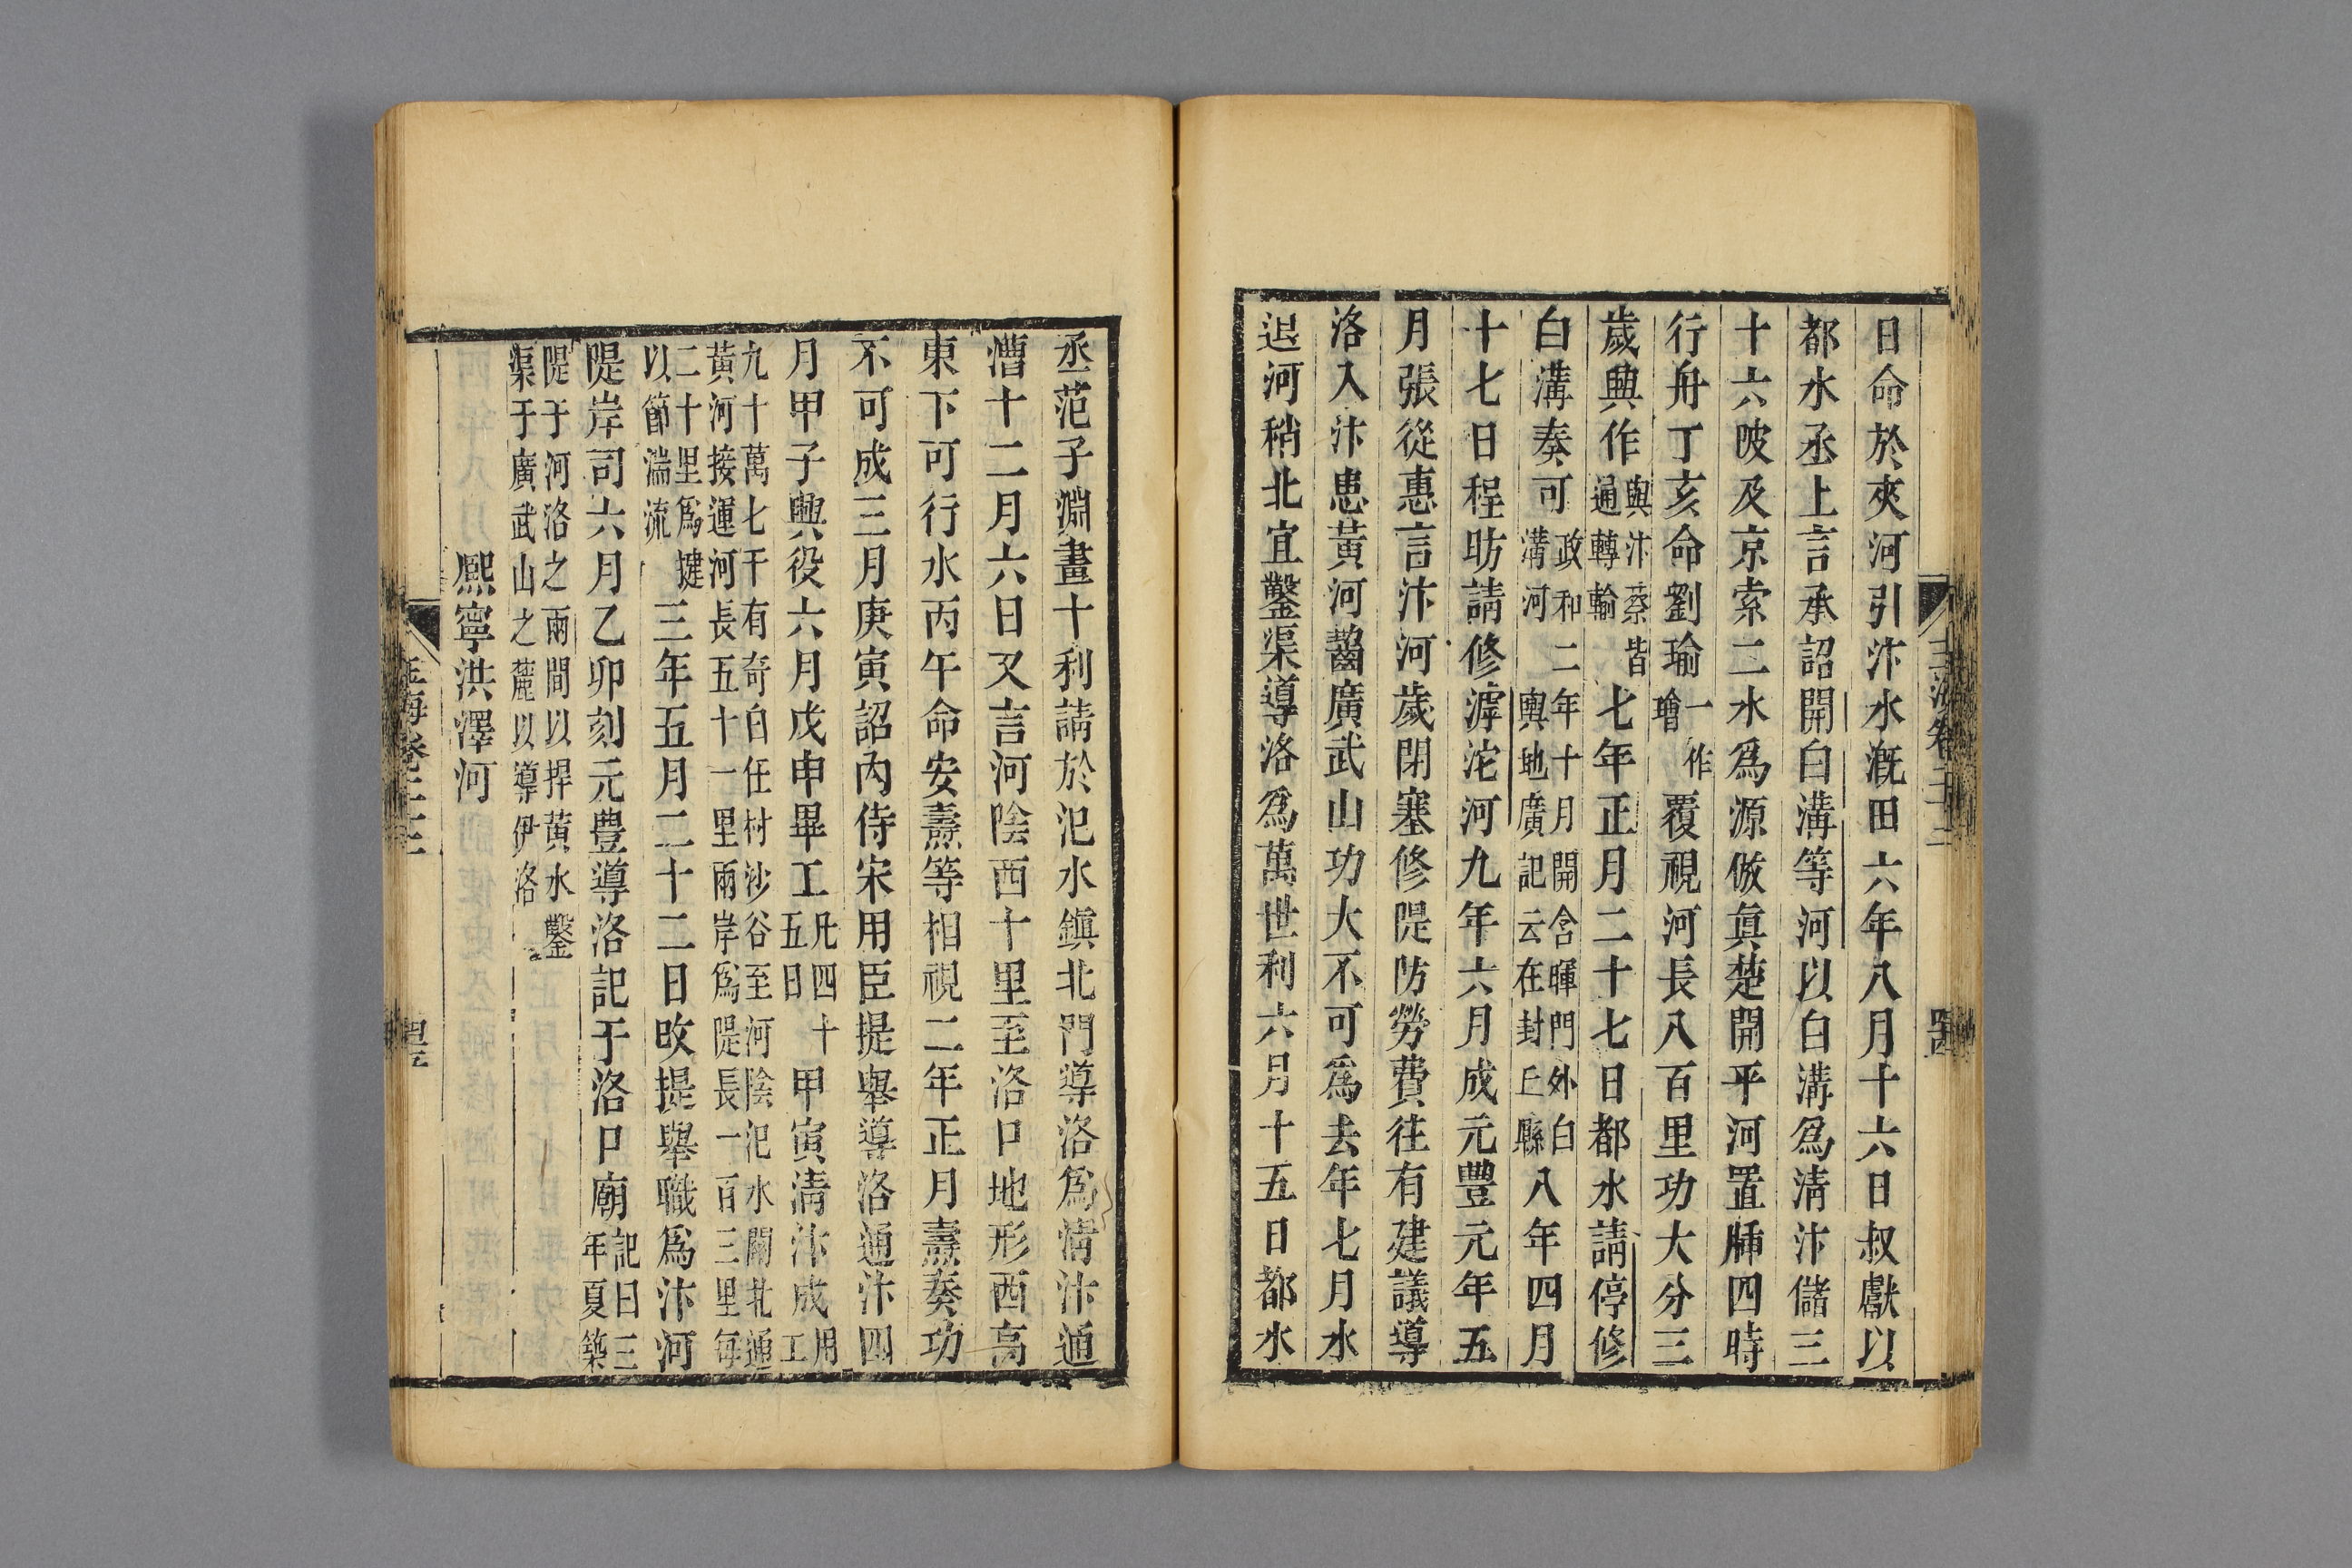 日命於夾河引汴水漑田六年八月十六日叔獻以
都水丞上言承詔開白溝等河以白溝爲淸汴儲三
十六陂及京索二水爲源倣眞楚開平河置牐四時
行舟丁亥命劉瑜一作璯覆視河長八百里功大分三
歲興作與汴蔡皆通轉輸七年正月二十七日都水請停修
白溝奏可政和二年十月開含暉門外白溝河輿地廣記云在封丘縣八年四月
十七日程昉請修滹沱河九年六月成元豐元年五
月張從惠言汴河歲閉塞修隄防勞費往有建議導
洛入汴患黃河齧廣武山功大不可爲去年七月水
退河稍北宜鑿渠導洛爲萬世利六月十五日都水
丞范子淵畫十利請於汜水鎭北門導洛爲淸汴通
漕十二月六日又言河陰西十里至洛口地形西高
東下可行水丙午命安燾等相視二年正月燾奏功
不可成三月庚寅詔內侍宋用臣提舉導洛通汴四
月甲子興役六月戊申畢工凡四十五日甲寅淸汴成用工
九十萬七千有奇自任村沙谷至河陰汜水關北通黃河接運河長五十一里兩岸爲隄長一百三里每
二十里爲揵以節湍流三年五月二十二日改提舉職爲汴河
隄岸司六月乙卯刻元豐導洛記于洛口廟記曰三年夏築
隄于河洛之兩間以捍黃水鑿渠于廣武山之麓以導伊洛
熙寧洪澤河
玉海卷二十二